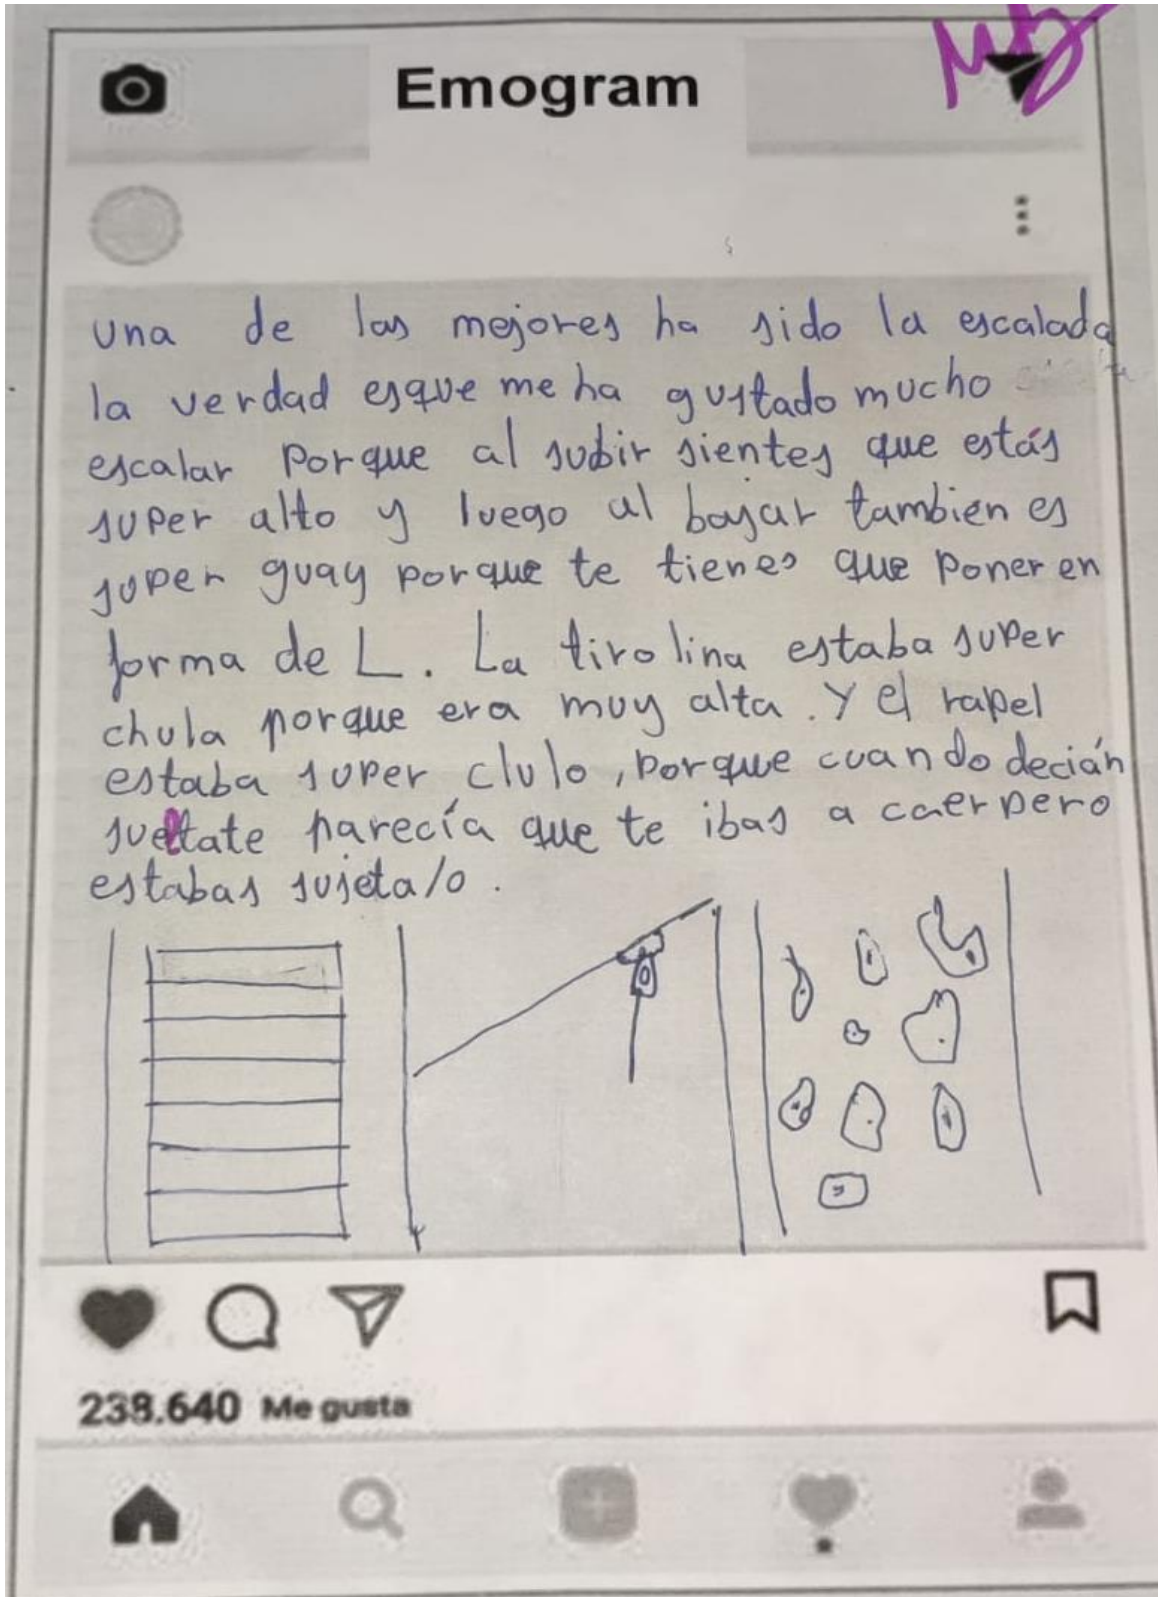 Emogram
una de las mejores ha sido la escalada
la verdad esque me ha gustado mucho
escalar porque al subir sientes que estás
super alto y luego al bajar tambien es
super guay porque te tienes que poner en
forma de L. La tirolina estaba super
chula porque era muy alta. Y el rapel
estaba super clulo, porque cuando decián
sueltate parecía que te ibas a caer pero
estabas sujeta/o.
238.640 Me gusta